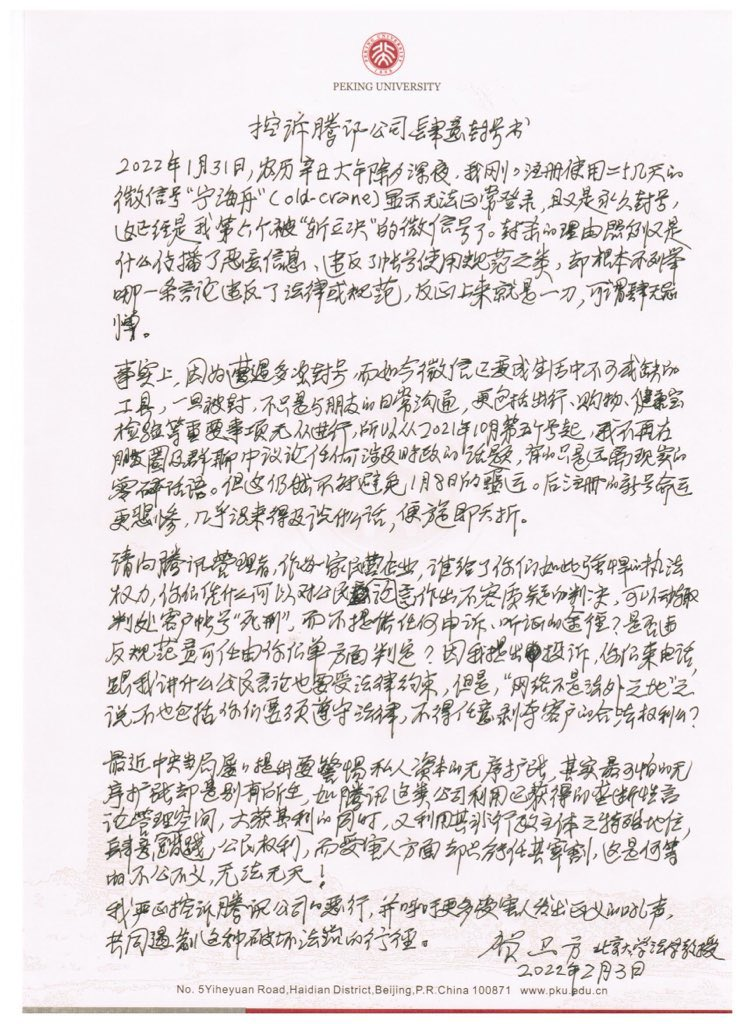 PEKING UNIVERSITY
控诉腾讯公司肆意封号书
2022年1月31日,农历辛丑大年除夕深夜,我刚刚注册使用二十几天的
微信号“宁海丹”(old-crane)显示无法正常登录,且又是永久封号,
这已经是我第六个被“斩立决”的微信号了。封杀的理由照例又是
什么传播了恶意信息、违反了帐号使用规范之类,却根本不列举
哪一条言论违反了法律或规范,反正上来就是一刀,可谓肆无忌
惮。
事实上,因为遭遇多次封号,而如今微信已变成生活中不可或缺的
工具,一旦被封,不只是与朋友的日常沟通,更包括出行、购物、健康宝
检验等重要事项无从进行,所以从2021年10月第五个号起,我不再在
朋友圈及群聊中议论任何涉及时政的话题,有的只是远离现实的
零碎话语。但这仍然不能避免1月8日的噩运。后注册的新号命运
更悲惨,几乎没来得及说什么话,便旋即夭折。
请问腾讯管理者,作为一家民营企业,谁给了你们如此强悍的执法
权力,你们凭什么可以对公民言论作出不容质疑的判决,可以动辄
判处客户帐号“死刑”,而不提供任何申诉、听证的途径?是否违
反规范岂可任由你们单方面判定?因我提出投诉,你们来电话,
跟我讲什么公民言论也要受法律约束,但是,“网络不是法外之地”之
说不也包括你们要须遵守法律,不得任意剥夺客户的合法权利么?
最近中央当局屡屡提出要警惕私人资本的无序扩张,其实最可怕的无
序扩张却是别有所在,如腾讯这类公司利用已获得的垄断性言
论管理空间,大获其利的同时,又利用其非行政主体之特殊地位,
肆意践踏公民权利,而受害人方面却只能任其宰割,这是何等
的不公不义,无法无天!
我严正控诉腾讯公司的恶行,并呼吁更多受害人发出正义的吼声,
共同遏制这种破坏法治的行径。
贺卫方 北京大学法学教授
2022年2月3日
No. 5Yiheyuan Road,Haidian District,Beijing,P.R.China 100871 www.pku.edu.cn